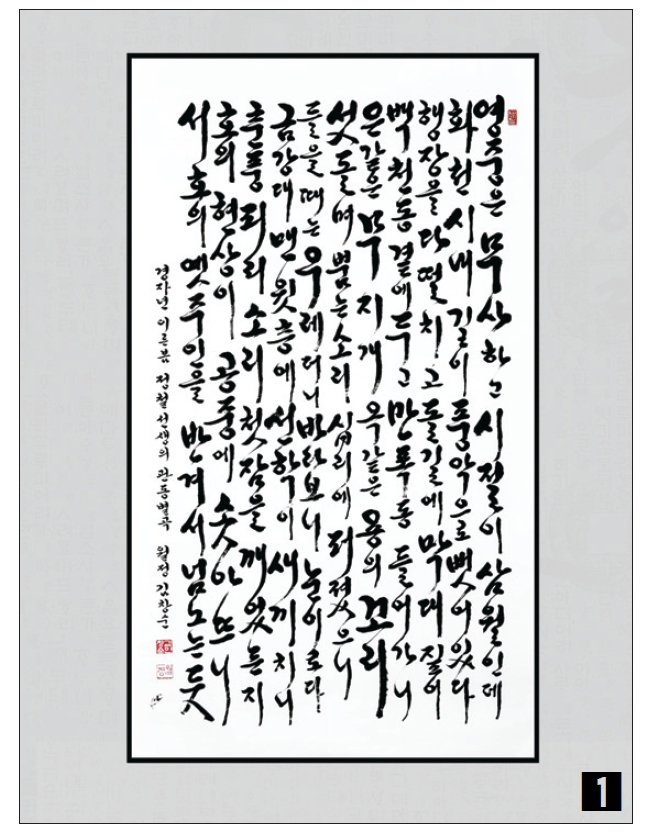 영중은 무사하고 시절이 삼월인데
화천 시내 길이 풍악으로 뻗어있다
행장을 다 떨치고 돌길에 막대 짚어
백천동 곁에 두고 만폭동 들어가니
은같은 무지개 옥같은 용의 꼬리
섯돌며 뿜는소리 십리에 퍼졌으니
들을때는 우레더니 바라보니 눈이로다
금강대 맨 윗층에 선학이 새끼치니
춘풍 피리 소리 첫잠을 깨었든지
호의 현상이 공중에 솟아 뜨니
서호의 옛주인을 반겨서 넘노는듯
경자년 이른봄 정철선생의 관동별곡 월정 김창순
1